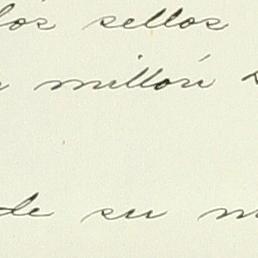 los sellos
millón
de su